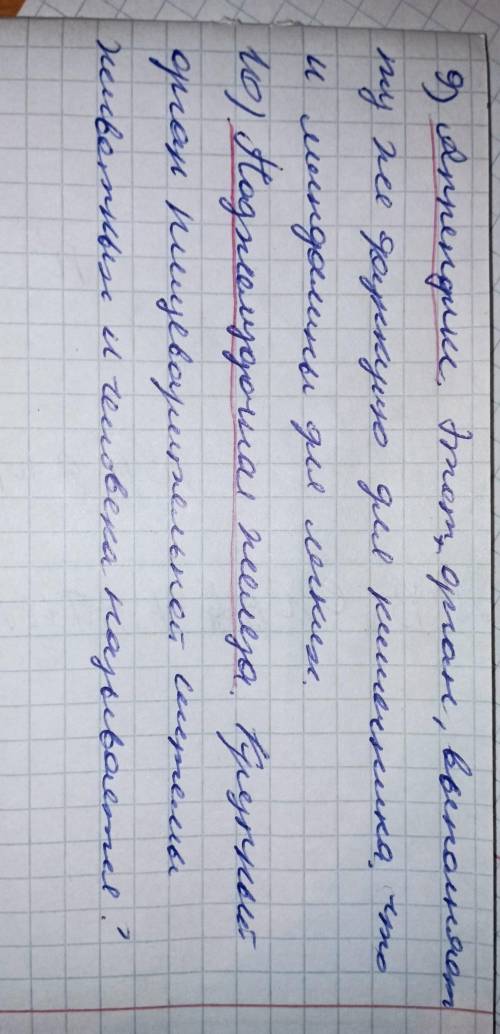 9) Аппендикс. Этот орган, выполняет
ту же функцию для кишечника, что
и миндалины для легких.
10) Поджелудочная железа. Крупный
орган пищеварительной системы
животных и человека называется?